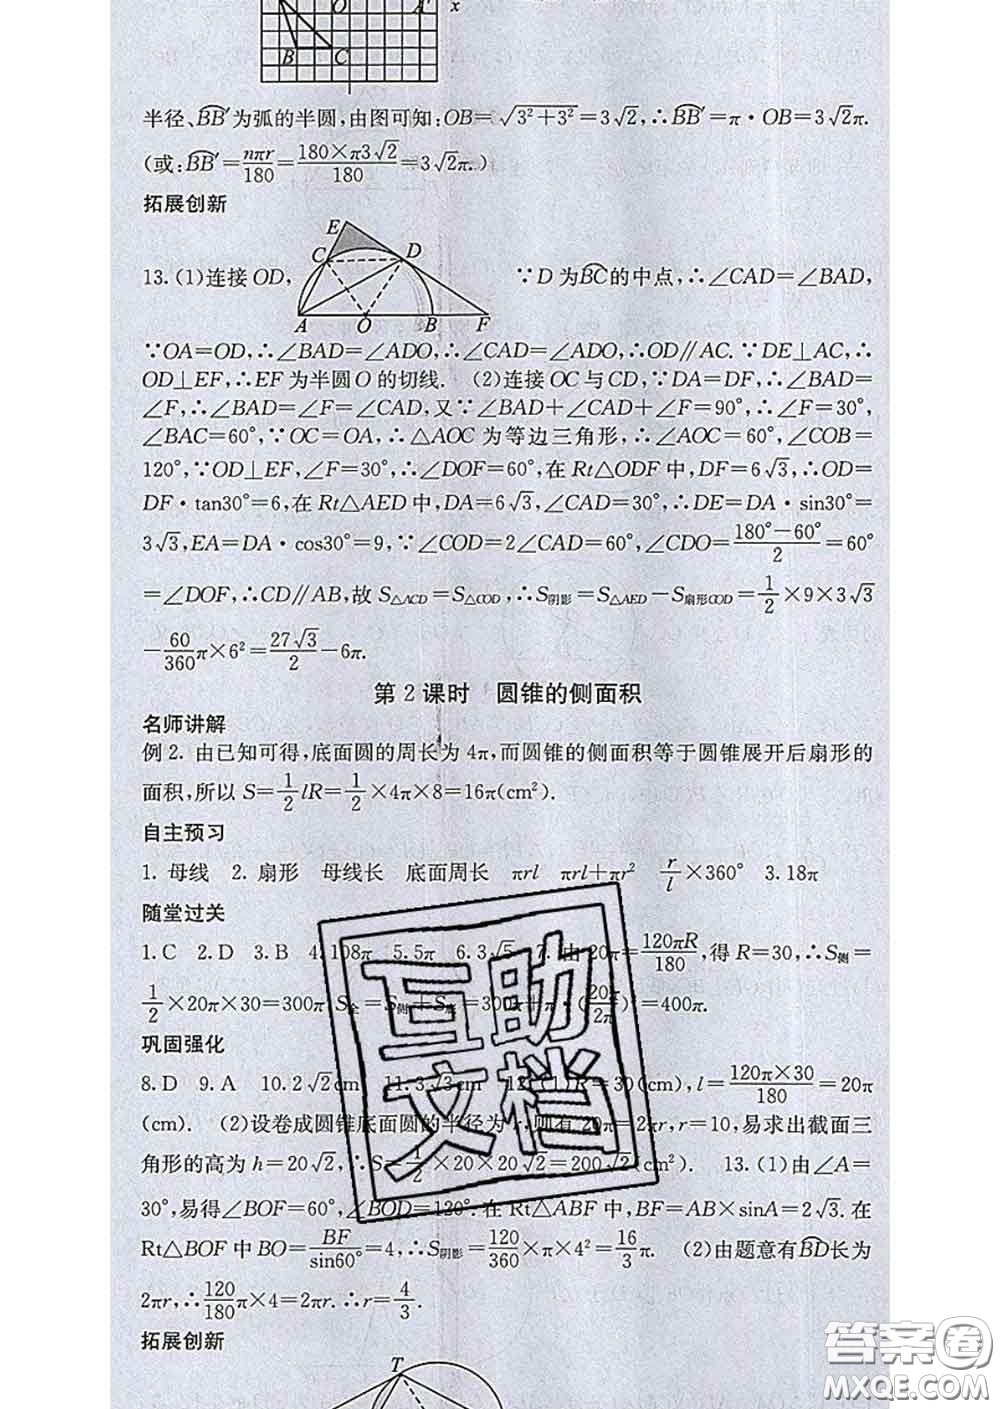 O A′ x
B C
半径、BB′为弧的半圆,由图可知:OB=√3²+3²=3√2,∴BB′=π·OB=3√2π.
(或:BB′=nπr/180=180×π3√2/180=3√2π.)
拓展创新
E
C D
13.(1)连接OD, ∵D为BC的中点,∴∠CAD=∠BAD,
A O B F
∵OA=OD,∴∠BAD=∠ADO,∴∠CAD=∠ADO,∴OD∥AC.∵DE⊥AC,∴
OD⊥EF,∴EF为半圆O的切线. (2)连接OC与CD,∵DA=DF,∴∠BAD=
∠F,∴∠BAD=∠F=∠CAD,又∵∠BAD+∠CAD+∠F=90°,∴∠F=30°,
∠BAC=60°,∵OC=OA,∴△AOC为等边三角形,∴∠AOC=60°,∠COB=
120°,∵OD⊥EF,∠F=30°,∴∠DOF=60°,在Rt△ODF中,DF=6√3,∴OD=
DF·tan30°=6,在Rt△AED中,DA=6√3,∠CAD=30°,∴DE=DA·sin30°=
3√3,EA=DA·cos30°=9,∵∠COD=2∠CAD=60°,∠CDO=180°−60°/2=60°
=∠DOF,∴CD∥AB,故S△ACD=S△COD,∴S阴影=S△AED−S扇形COD=1/2×9×3√3
−60/360π×6²=27√3/2−6π.
第2课时 圆锥的侧面积
名师讲解
例2. 由已知可得,底面圆的周长为4π,而圆锥的侧面积等于圆锥展开后扇形的
面积,所以S=1/2lR=1/2×4π×8=16π(cm²).
自主预习
1. 母线 2. 扇形 母线长 底面周长 πrl πrl+πr² r/l×360° 3.18π
随堂过关
1.C 2.D 3.B 4.108π 5.5π 6.3√5 7. 由20π=120πR/180,得R=30,∴S侧=
1/2×20π×30=300π S全=S侧+S底=300π+π·(20π/2π)²=400π.
巩固强化
8.D 9.A 10.2√2cm 11.3√3cm 12.(1)R=30(cm),l=120π×30/180=20π
(cm). (2)设卷成圆锥底面圆的半径为r,则有20π=2πr,r=10,易求出截面三
角形的高为h=20√2,∴S=1/2×20×20√2=200√2(cm²). 13.(1)由∠A=
30°,易得∠BOF=60°,∠BOD=120°.在Rt△ABF中,BF=AB×sinA=2√3.在
Rt△BOF中BO=BF/sin60°=4,∴S阴影=120/360×π×4²=16/3π. (2)由题意有BD长为
2πr,∴120/180π×4=2πr.∴r=4/3.
拓展创新
T
互助
文档
答案圈
MXQE.COM